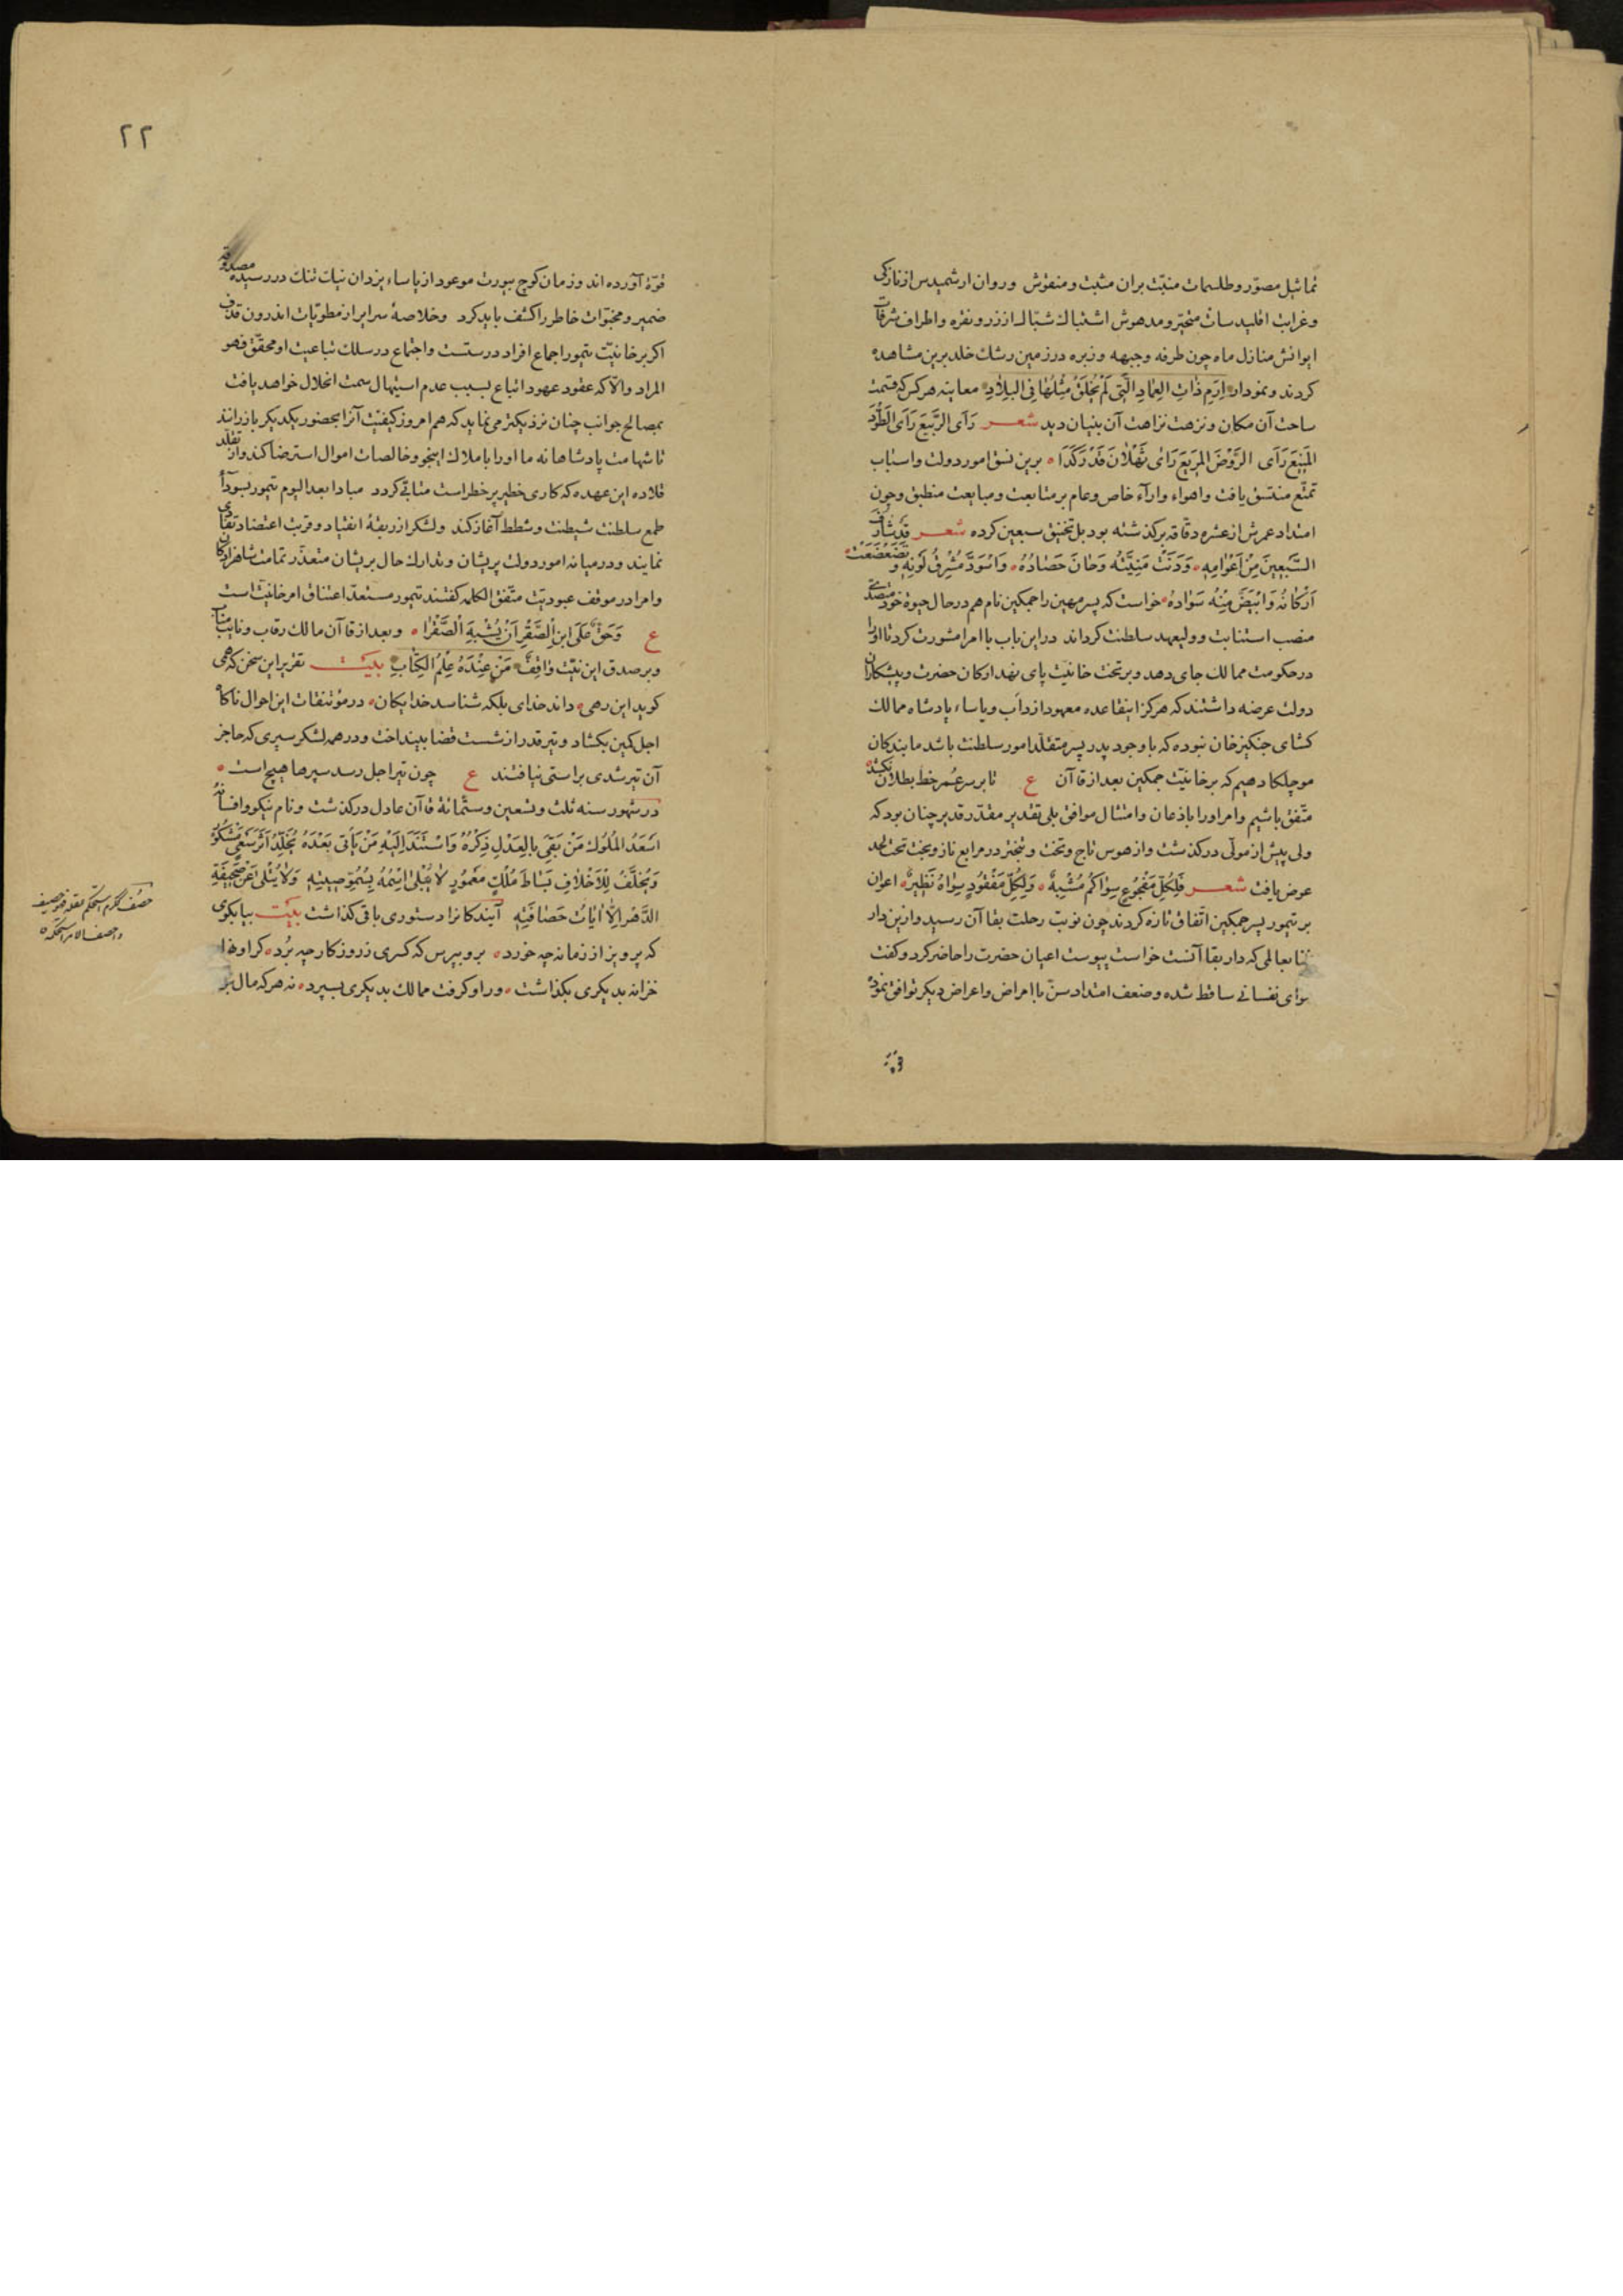 تماثیل مصوّر و طلسمات منبّت بران مثبت و منقوش و روان ارشمیدس از نازکی
و غرایب اقلیدسانش متحیّر و مدهوش اشتباک شبّاک از زر و نقره و اطراف شرفات
ایوانش منازل ماه چون طرفه و جبهه و زبره در زمین رشک خلد برین مشاهده
کردند و نمودار اِرَمَ ذَاتِ العِمَادِ الَّتِی لَمْ یُخْلَقْ مِثْلُهَا فِی البِلَادِ معاینه هر کس که قسمت
ساحت آن مکان و نزهت نزاهت آن بنیان دید شعر رَأَی الرَّبِیعَ رَأَی الطَّوْدَ
المَنِیعَ رَأَی الرَّوْضَ المَرِیعَ رَأَی ثَهْلَانَ قَدْ رَکَدَا برین نسق امور دولت و اسباب
تمتّع منتسق یافت و اهواء و آراء خاص و عام بر متابعت و مبایعت منطبق و چون
امتداد عمرش از عشره دقّاقه برگذشته بود بل تخنیق سبعین کرده شعر قَدْ شَارَفَ
السَّبعِینَ مِنْ اَعْوَامِهِ وَدَنَتْ مَنِیَّتُه وَحَانَ حَصَادُهُ وَاسْوَدَّ مُشْرِقُ لَوْنِهِ وَ تَضَعْضَعَتْ
اَرْکَانُهُ وَابْیَضَّ مِنْهُ سَوَادُهُ خواست که پسر مهین را جمکین نام هم در حال حیوة خود متصدّی
منصب استنابت و ولیعهد سلطنت کرداند درین باب با امرا مشورت کرد تا او را
در حکومت ممالک جای دهد و بر تخت خانیّت پای نهد ارکان حضرت و پیشکاران
دولت عرضه داشتند که هرکز این قاعده معهود از دأب و یاساء پادشاه ممالک
کشای جنکیز خان نبوده که با وجود پدر پسر متقلّد امور سلطنت باشد ما بندکان
موچلکا دهیم که بر خانیّت جمکین بعد از قاآن ع تا بر سر عمر خط بطلان نکشد
متّفق باشیم و امر او را باذعان و امتثال موافق بلی تقدیر مقدّر قدیر چنان بود که
ولی پیش از مولّی درکذشت و از هوس تاج و تخت و تبختر در مرابع ناز و بخت تخت لحد
عوض یافت شعر فَلِکُلِّ مَفْجُوعٍ سِوَاکُم مُشْبِهٌ وَلِکُلِّ مَفْقُودٍ سِوَاهُ نَظِیرٌ اعوان
بر تیمور پسر جمکین اتّفاق تازه کردند چون نوبت رحلت بقاآن رسید و ازین دار
فنا بعالمی که دار بقا آنست خواست پیوست اعیان حضرت را حاضر کرد و کفت
قوای نفسانی ساقط شده و ضعف امتداد سنّ با امراض و اعراض دیکر توافق نموده
قوّة آورده‌اند و زمان کوچ بیورت موعود از یاساء یزدان نیک تنک در رسیده مصدوقه
ضمیر و مخبوّات خاطر را کشف باید کرد و خلاصهٔ سرایر از مطویّات اندرون قذف
اکر بر خانیّت تیمور اجماع افراد درستست و اجتماع در سلک تباعیت او محقّق فهو
المراد و الّا که عقود عهود اتباع بسبب عدم استیهال سمت انحلال خواهد یافت
بمصالح جوانب چنان نزدیکتر می‌نماید که هم امروز کیفیّت آنرا بحضور یکدیکر بازرانند
تا شهامت پادشاهانه ما او را باملاک اینجو و خالصات اموال استرضا کند و از تقلّد
قلاده این عهده که کاری خطیر پر خطر است متأبّی کردد مبادا بعد الیوم تیمور بسودای
طمع سلطنت شیطنت و شطط آغاز کند و لشکر از ربقهٔ انقیاد و قربت اعتضاد تفادی
نمایند و در میانه امور دولت پریشان و تدارک حال پریشان متعذّر تمامت شاهزادکان
و امرا در موقف عبودیّت متّفق الکلمه کفتند تیمور مستعدّ اعتناق امر خانیّت است
ع وَحَقٌّ عَلَی ابنِ الصَّقْرِ اَنْ یُشْبِهَ الصَّقْرَا و بعد از قاآن مالک رقاب و نایب مناب
و بر صدق این نیّت وَاقِفٌ مَنْ عِنْدَهُ عِلْمُ الکِتَابِ بیت تقریر این سخن که همی
کوید این رهی داند خدای بلکه شناسد خدایکان در مؤتنفات این احوال ناکاه
اجل کمین بکشاد و تیر قدر از شست قضا بینداخت و در همه لشکر سپری که حاجز
آن تیر شدی براستی نیافتند ع چون تیر اجل رسد سپرها هیچ است
در شهور سنه ثلث و تسعین و ستّمائة قاآن عادل درکذشت و نام نیکو و افسانهٔ
اَسْعَدُ المُلُوکِ مَنْ بَقِیَ بِالعَدْلِ ذِکْرُهُ وَاسْتَنَدَ اِلَیْهِ مَنْ یَأْتِی بَعْدَهُ یُخَلِّدُ اَثَرَ سَعْیٍ مَشْکُورٍ
وَیُخَلِّفُ لِلْاَخْلَافِ بَسَاطَ مُلْکٍ مَعْمُورٍ لَا یَبْلَی اسْمُهُ بِسُمُوِّ صِیتِهِ وَلَا یُتْلَی عَنْ صَحِیفَةِ
الدَّهْرِ اِلَّا آیَاتُ حَصَافَتِهِ آیندکانرا دستوری باقی کذاشت بیت بیا بکوی
که پرویز از زمانه چه خورد برو بپرس که کسری ز روزکار چه بُرد کر او خزا
خزانه بدیکری بکذاشت ور او کرفت ممالک بدیکری بسپرد نه هر که مال
۲۲